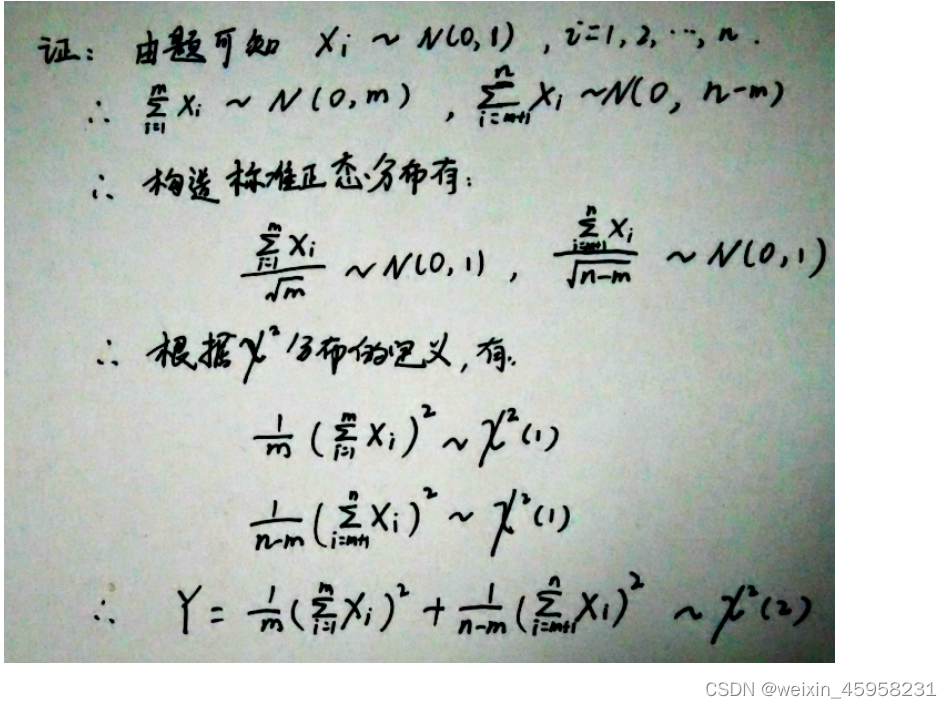 证: 由题可知 Xi ~ N(0,1), i=1,2,…,n.
∴ ∑_{i=1}^{m} Xi ~ N(0,m), ∑_{i=m+1}^{n} Xi ~N(0, n-m)
∴ 构造标准正态分布有:
\frac{∑_{i=1}^{m} Xi}{√m} ~ N(0,1), \frac{∑_{i=m+1}^{n} Xi}{√(n-m)} ~ N(0,1)
∴ 根据χ²分布的定义,有:
\frac{1}{m} (∑_{i=1}^{m} Xi)² ~ χ²(1)
\frac{1}{n-m} (∑_{i=m+1}^{n} Xi)² ~ χ²(1)
∴ Y = \frac{1}{m} (∑_{i=1}^{m} Xi)² + \frac{1}{n-m} (∑_{i=m+1}^{n} Xi)² ~ χ²(2)
CSDN @weixin_45958231